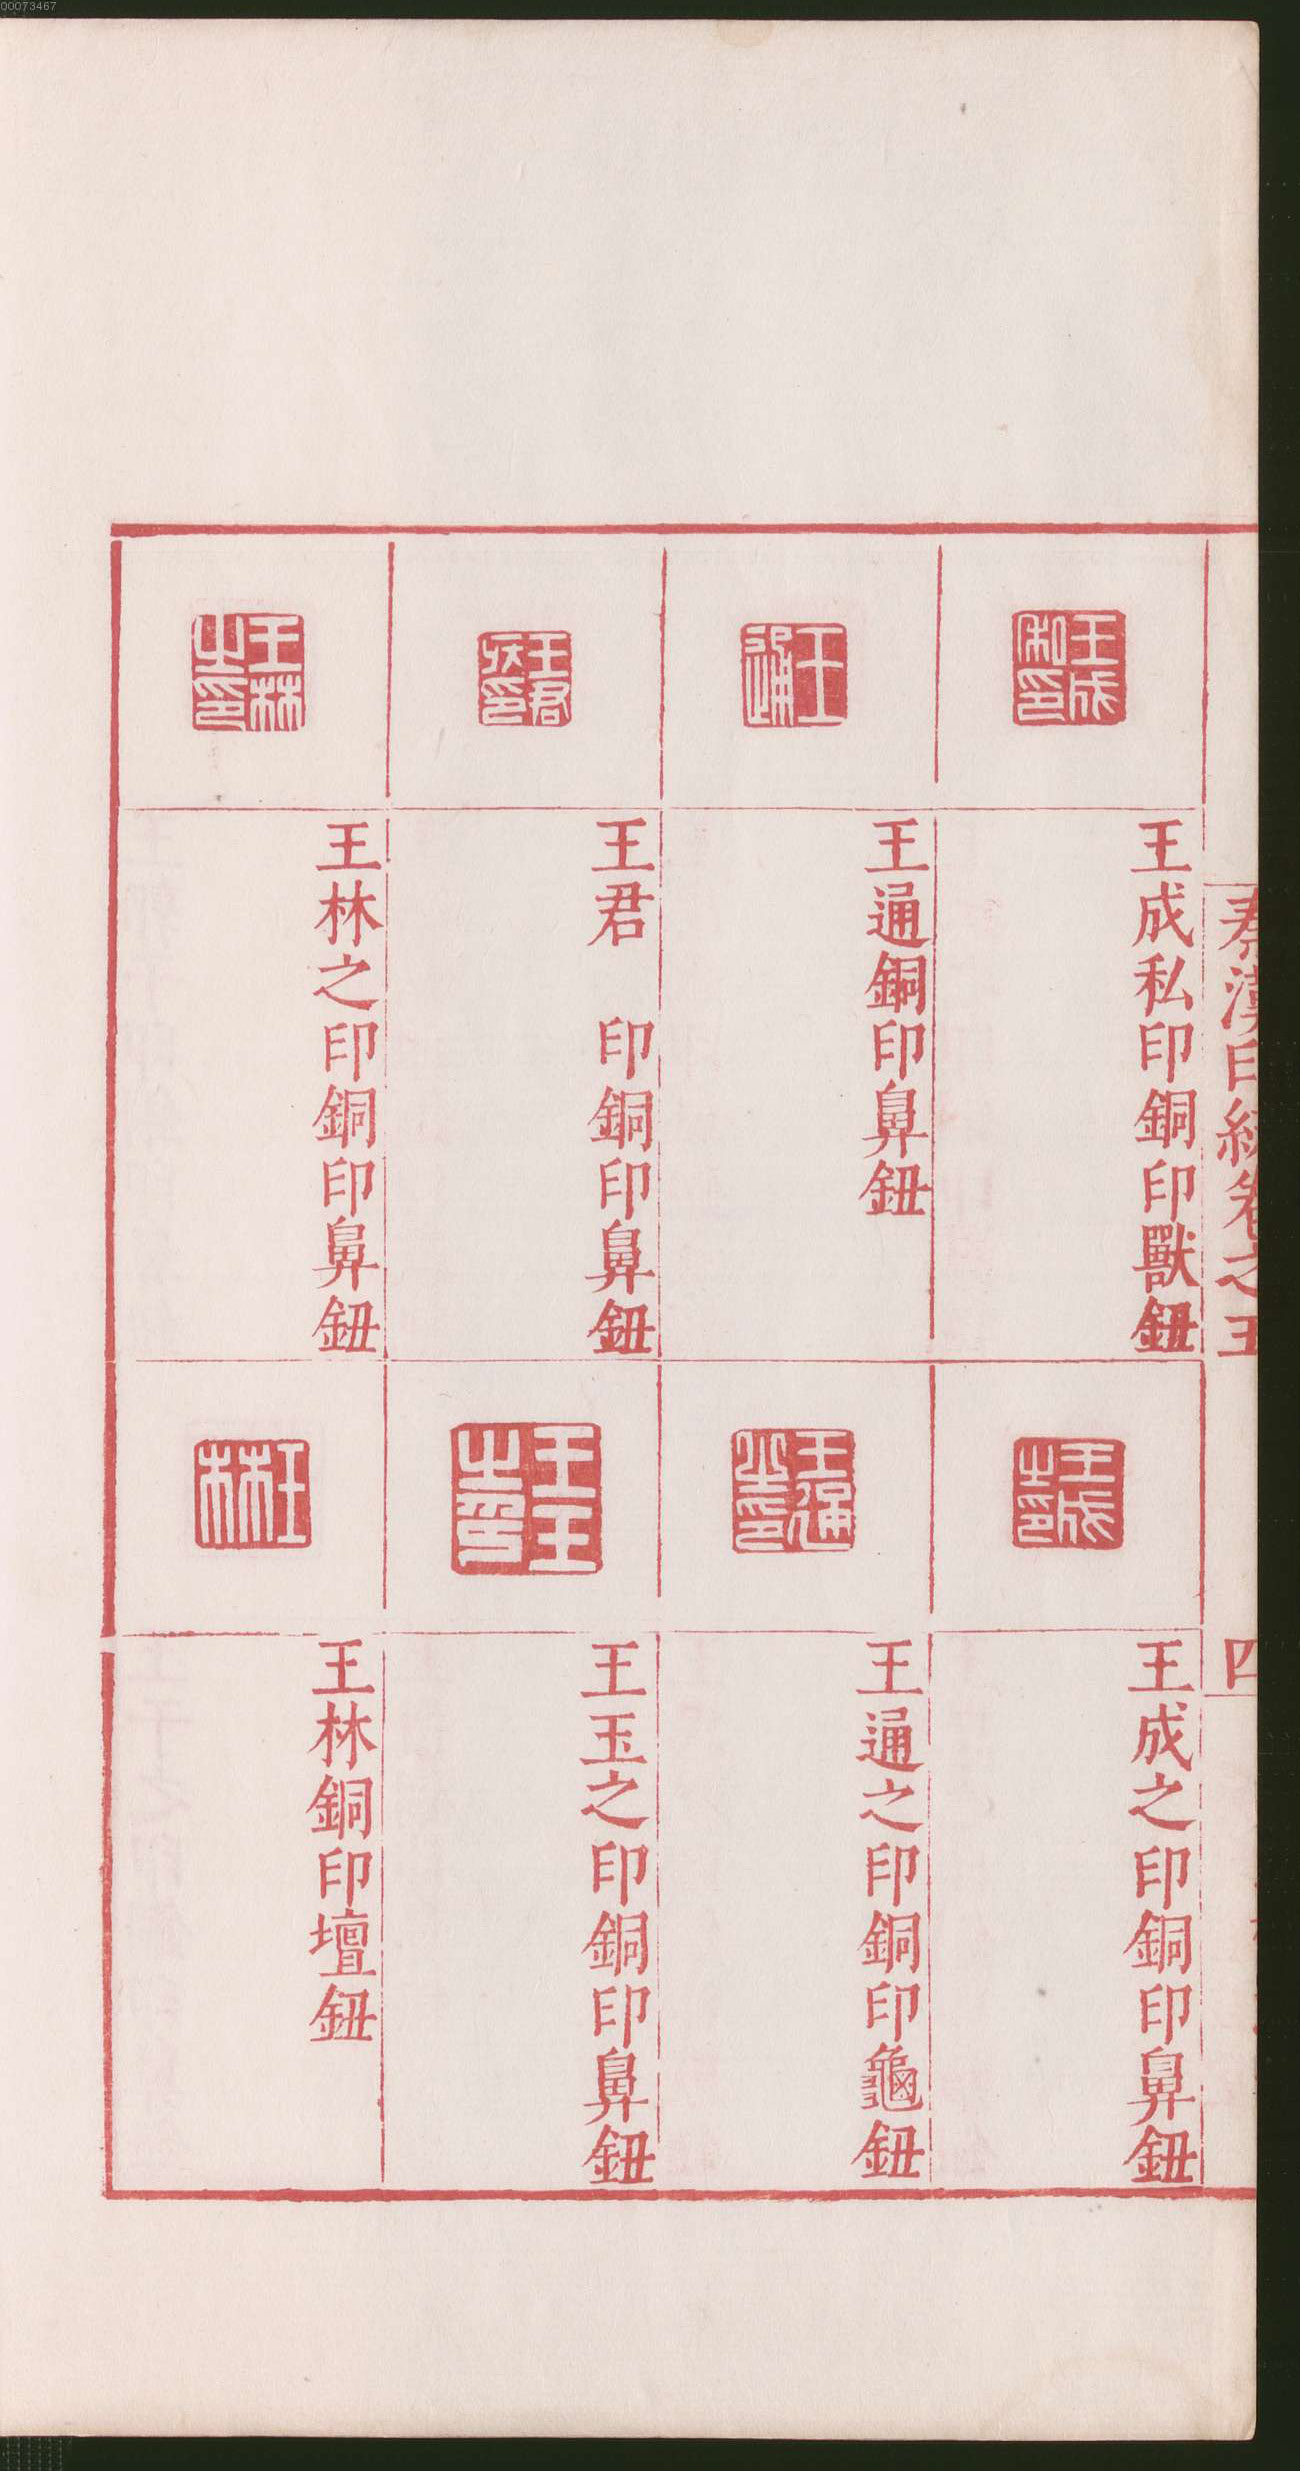 00073467
秦漢印統卷之五
四
王成私印
王成私印銅印獸鈕
王通
王通銅印鼻鈕
王君 印
王君 印銅印鼻鈕
王林之印
王林之印銅印鼻鈕
王成之印
王成之印銅印鼻鈕
王通之印
王通之印銅印龜鈕
王玉之印
王玉之印銅印鼻鈕
王林
王林銅印壇鈕